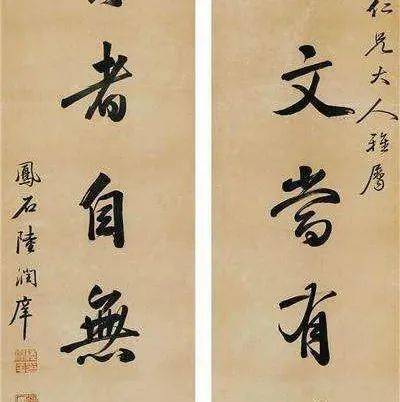 仁兄大人雅屬
文當有
者自無
鳳石陸潤庠